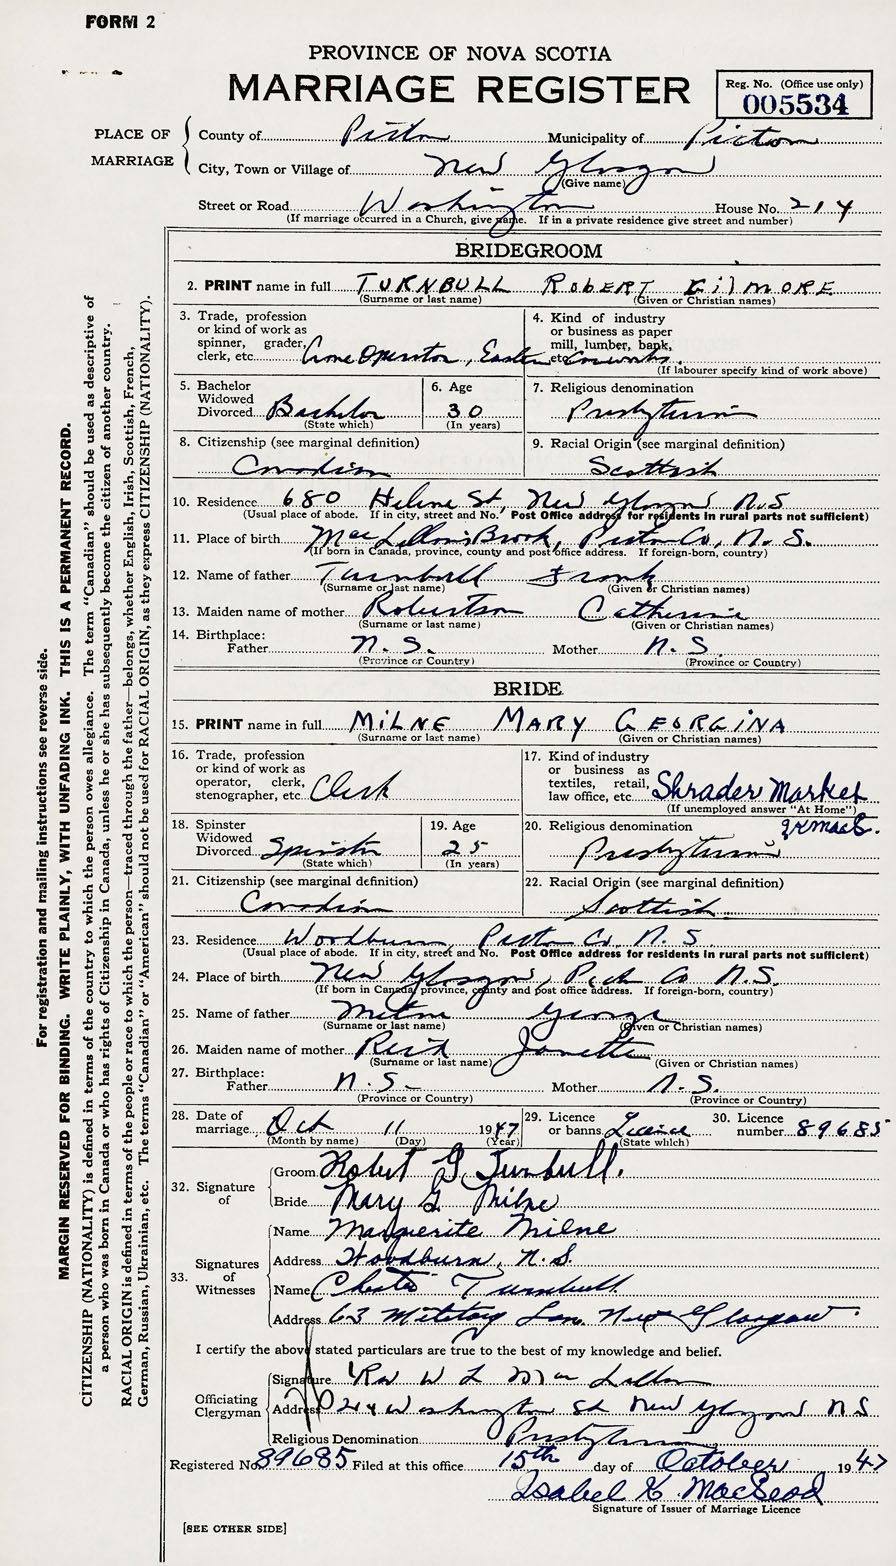 FORM 2
PROVINCE OF NOVA SCOTIA
MARRIAGE REGISTER
Reg. No. (Office use only)
005534
PLACE OF MARRIAGE
County of Pictou Municipality of Pictou
City, Town or Village of New Glasgow
(Give name)
Street or Road Washington House No. 214
(If marriage occurred in a Church, give name. If in a private residence give street and number)
BRIDEGROOM
2. PRINT name in full TURNBULL ROBERT GILMORE
(Surname or last name) (Given or Christian names)
3. Trade, profession or kind of work as spinner, grader, clerk, etc. Crane Operator, Eastern
4. Kind of industry or business as paper mill, lumber, bank, etc. Carworks.
(If labourer specify kind of work above)
5. Bachelor Widowed Divorced Bachelor
(State which)
6. Age 30
(In years)
7. Religious denomination
Presbyterian
8. Citizenship (see marginal definition)
Canadian
9. Racial Origin (see marginal definition)
Scottish
10. Residence 680 Helene St, New Glasgow N.S
(Usual place of abode. If in city, street and No. Post Office address for residents in rural parts not sufficient)
11. Place of birth MacLellans Brook, Pictou Co, N.S.
(If born in Canada, province, county and post office address. If foreign-born, country)
12. Name of father Turnbull Frank
(Surname or last name) (Given or Christian names)
13. Maiden name of mother Robertson Catherine
(Surname or last name) (Given or Christian names)
14. Birthplace:
Father N.S. Mother N.S.
(Province or Country) (Province or Country)
BRIDE
15. PRINT name in full MILNE MARY GEORGINA
(Surname or last name) (Given or Christian names)
16. Trade, profession or kind of work as operator, clerk, stenographer, etc. Clerk
17. Kind of industry or business as textiles, retail, law office, etc. Shrader Market
(If unemployed answer "At Home")
18. Spinster Widowed Divorced Spinster
(State which)
19. Age 25
(In years)
20. Religious denomination
Presbyterian
21. Citizenship (see marginal definition)
Canadian
22. Racial Origin (see marginal definition)
Scottish
23. Residence Woodburn, Pictou Co. N.S.
(Usual place of abode. If in city, street and No. Post Office address for residents in rural parts not sufficient)
24. Place of birth New Glasgow, Pict Co N.S.
(If born in Canada, province, county and post office address. If foreign-born, country)
25. Name of father Milne George
(Surname or last name) (Given or Christian names)
26. Maiden name of mother Reid Janette
(Surname or last name) (Given or Christian names)
27. Birthplace:
Father N.S. Mother N.S.
(Province or Country) (Province or Country)
28. Date of marriage Oct 11 1947
(Month by name) (Day) (Year)
29. Licence or banns Licence
(State which)
30. Licence number 89685
32. Signature of
Groom Robert G Turnbull.
Bride Mary G. Milne
33. Signatures of Witnesses
Name Marguerite Milne
Address Woodburn, N.S.
Name Chester Turnbull
Address 63 Military Lane New Glasgow.
I certify the above stated particulars are true to the best of my knowledge and belief.
Officiating Clergyman
Signature Rev W L MacLellan
Address 214 Washington St New Glasgow N S
Religious Denomination Presbyterian
Registered No. 89685 Filed at this office 15th day of October 1947
Isabel K. MacLeod
Signature of Issuer of Marriage Licence
[SEE OTHER SIDE]
For registration and mailing instructions see reverse side.
MARGIN RESERVED FOR BINDING. WRITE PLAINLY, WITH UNFADING INK. THIS IS A PERMANENT RECORD.
CITIZENSHIP (NATIONALITY) is defined in terms of the country to which the person owes allegiance. The term "Canadian" should be used as descriptive of
a person who was born in Canada or who has rights of Citizenship in Canada, unless he or she has subsequently become the citizen of another country.
RACIAL ORIGIN is defined in terms of the people or race to which the person—traced through the father—belongs, whether English, Irish, Scottish, French,
German, Russian, Ukrainian, etc. The terms "Canadian" or "American" should not be used for RACIAL ORIGIN, as they express CITIZENSHIP (NATIONALITY).